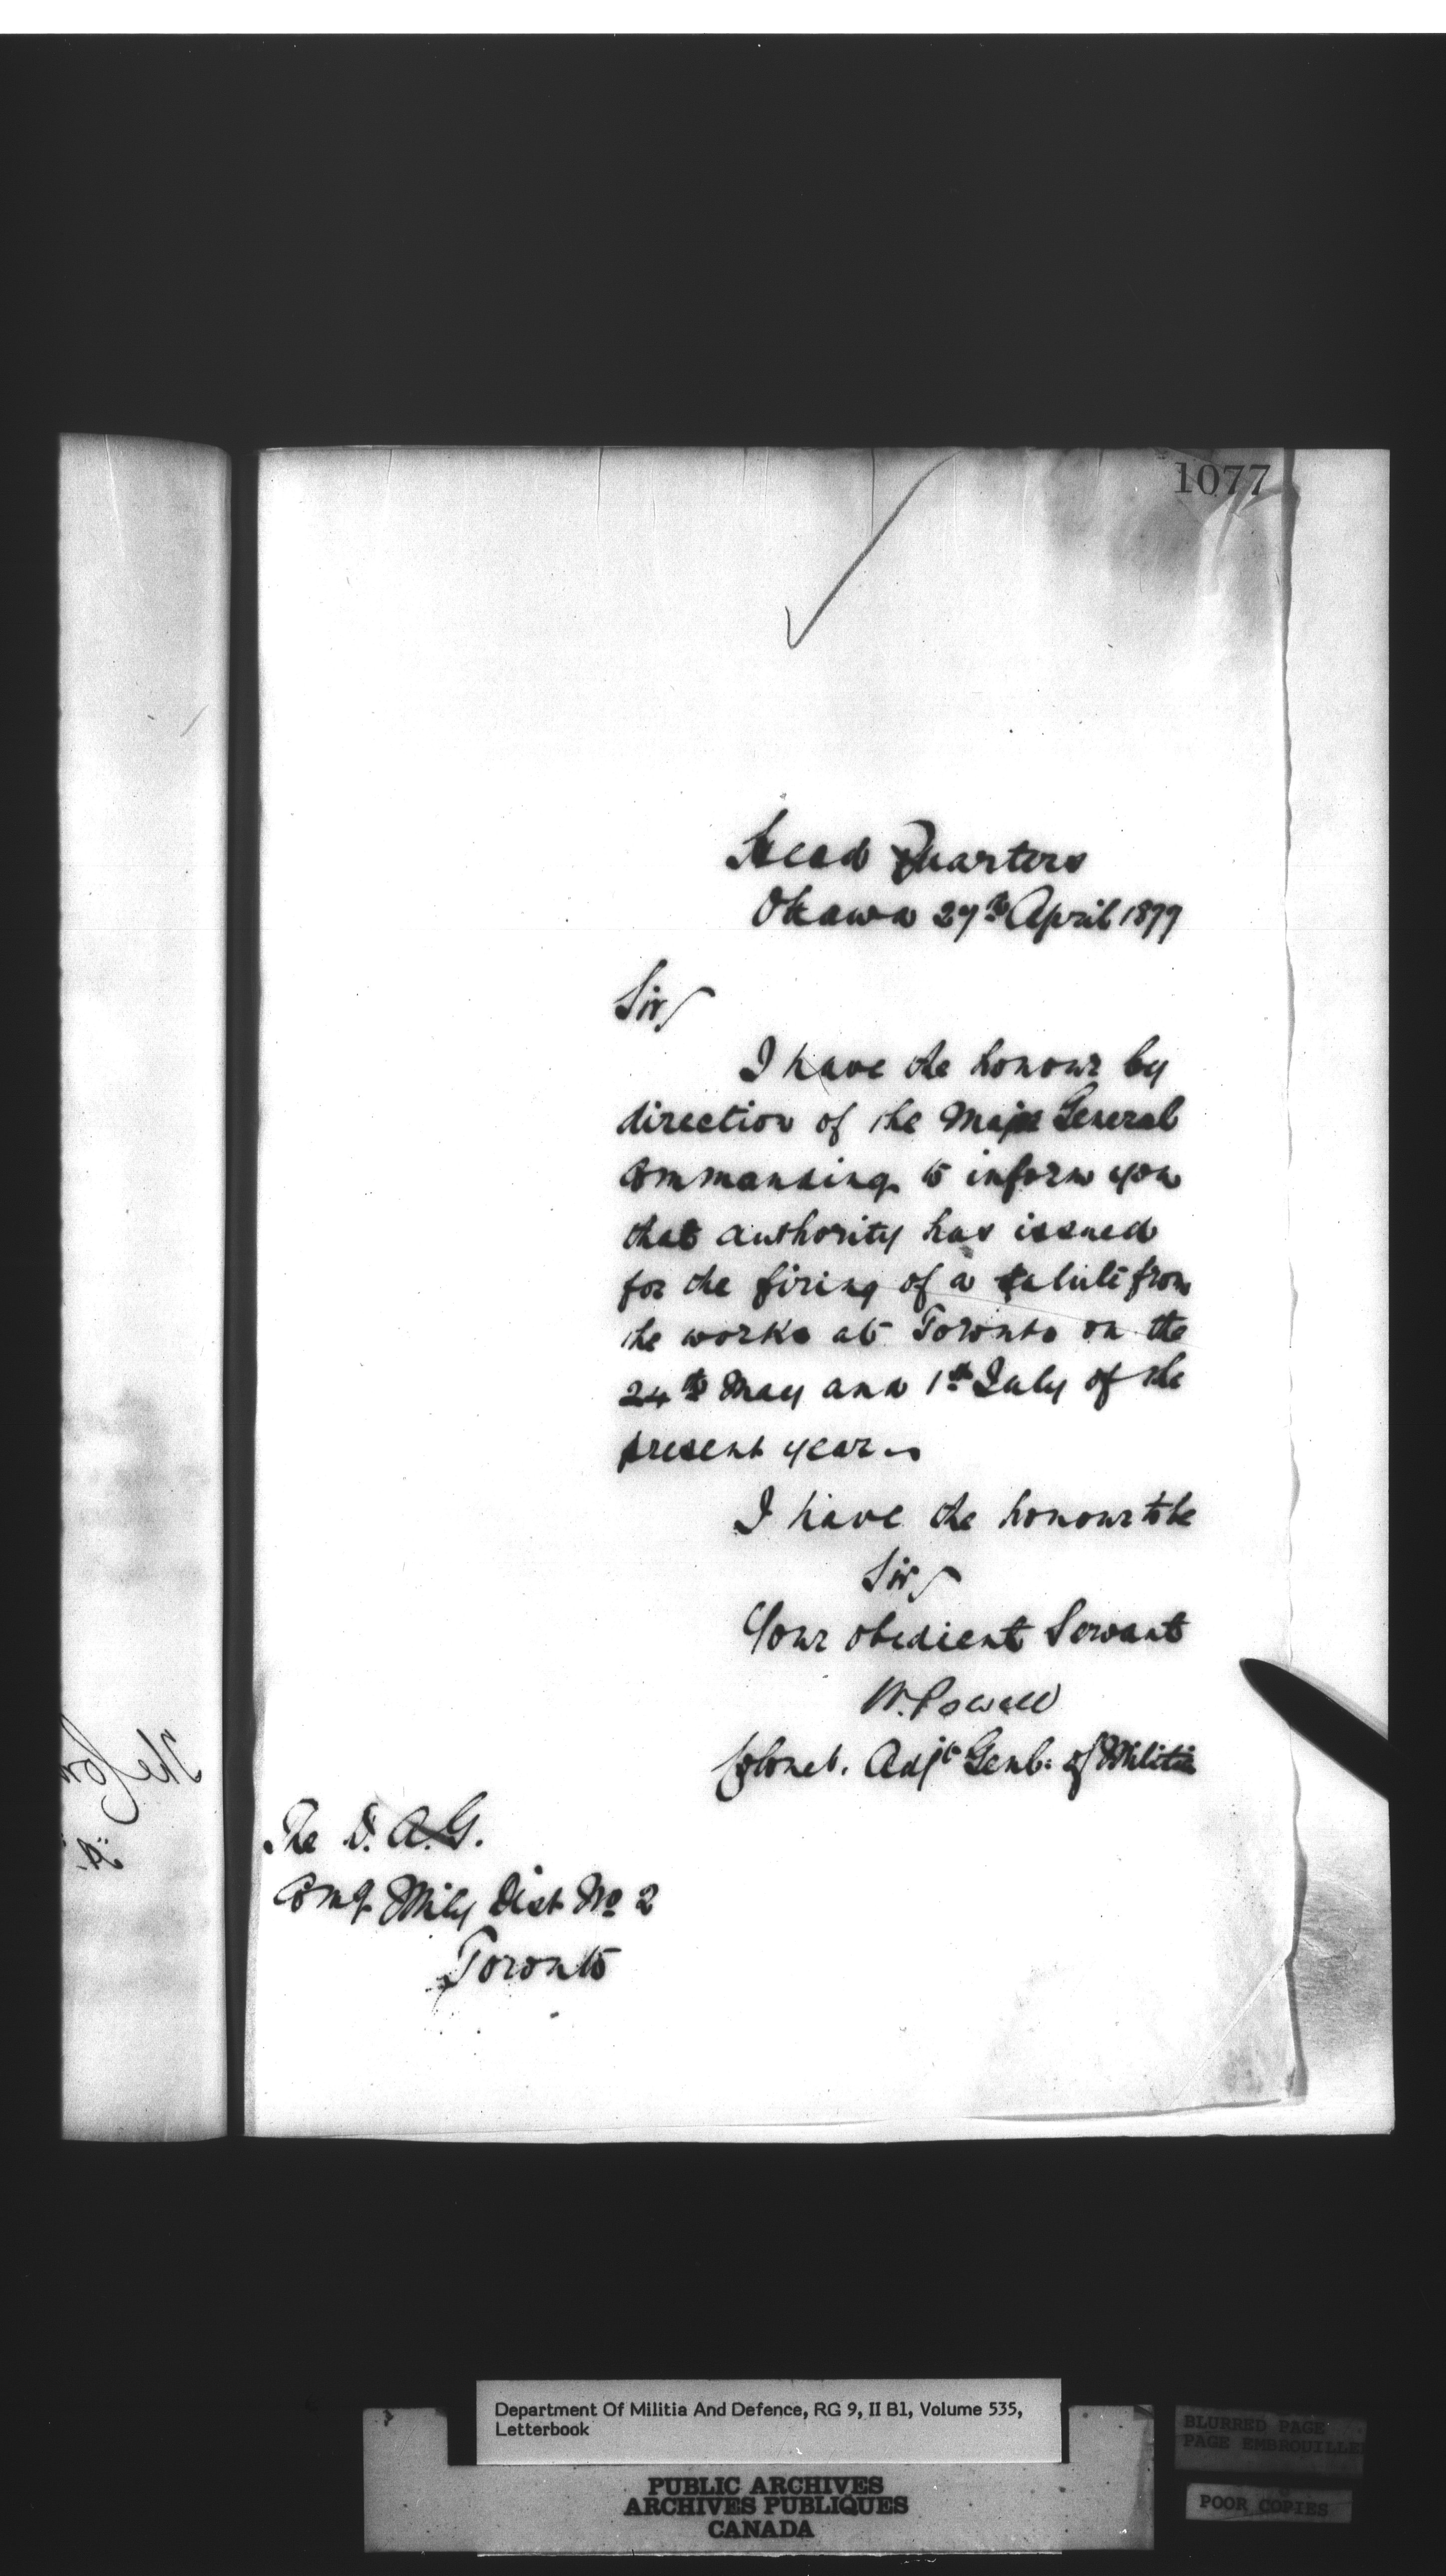 1077
Head Quarters
Ottawa 27th April 1877
Sir,
I have the honour by
direction of the Major General
Commanding to inform you
that authority has issued
for the firing of a salute from
the works at Toronto on the
24th May and 1st July of the
present year.
I have the honour to be
Sir,
Your obedient Servant
W. Powell
Colonel. Adjt Genl: of Militia
The D. A. G.
Comg. Mily Dist No 2
Toronto
The
Department Of Militia And Defence, RG 9, II B1, Volume 535,
Letterbook
PUBLIC ARCHIVES
ARCHIVES PUBLIQUES
CANADA
BLURRED PAGE
PAGE EMBROUILLE
POOR COPIES